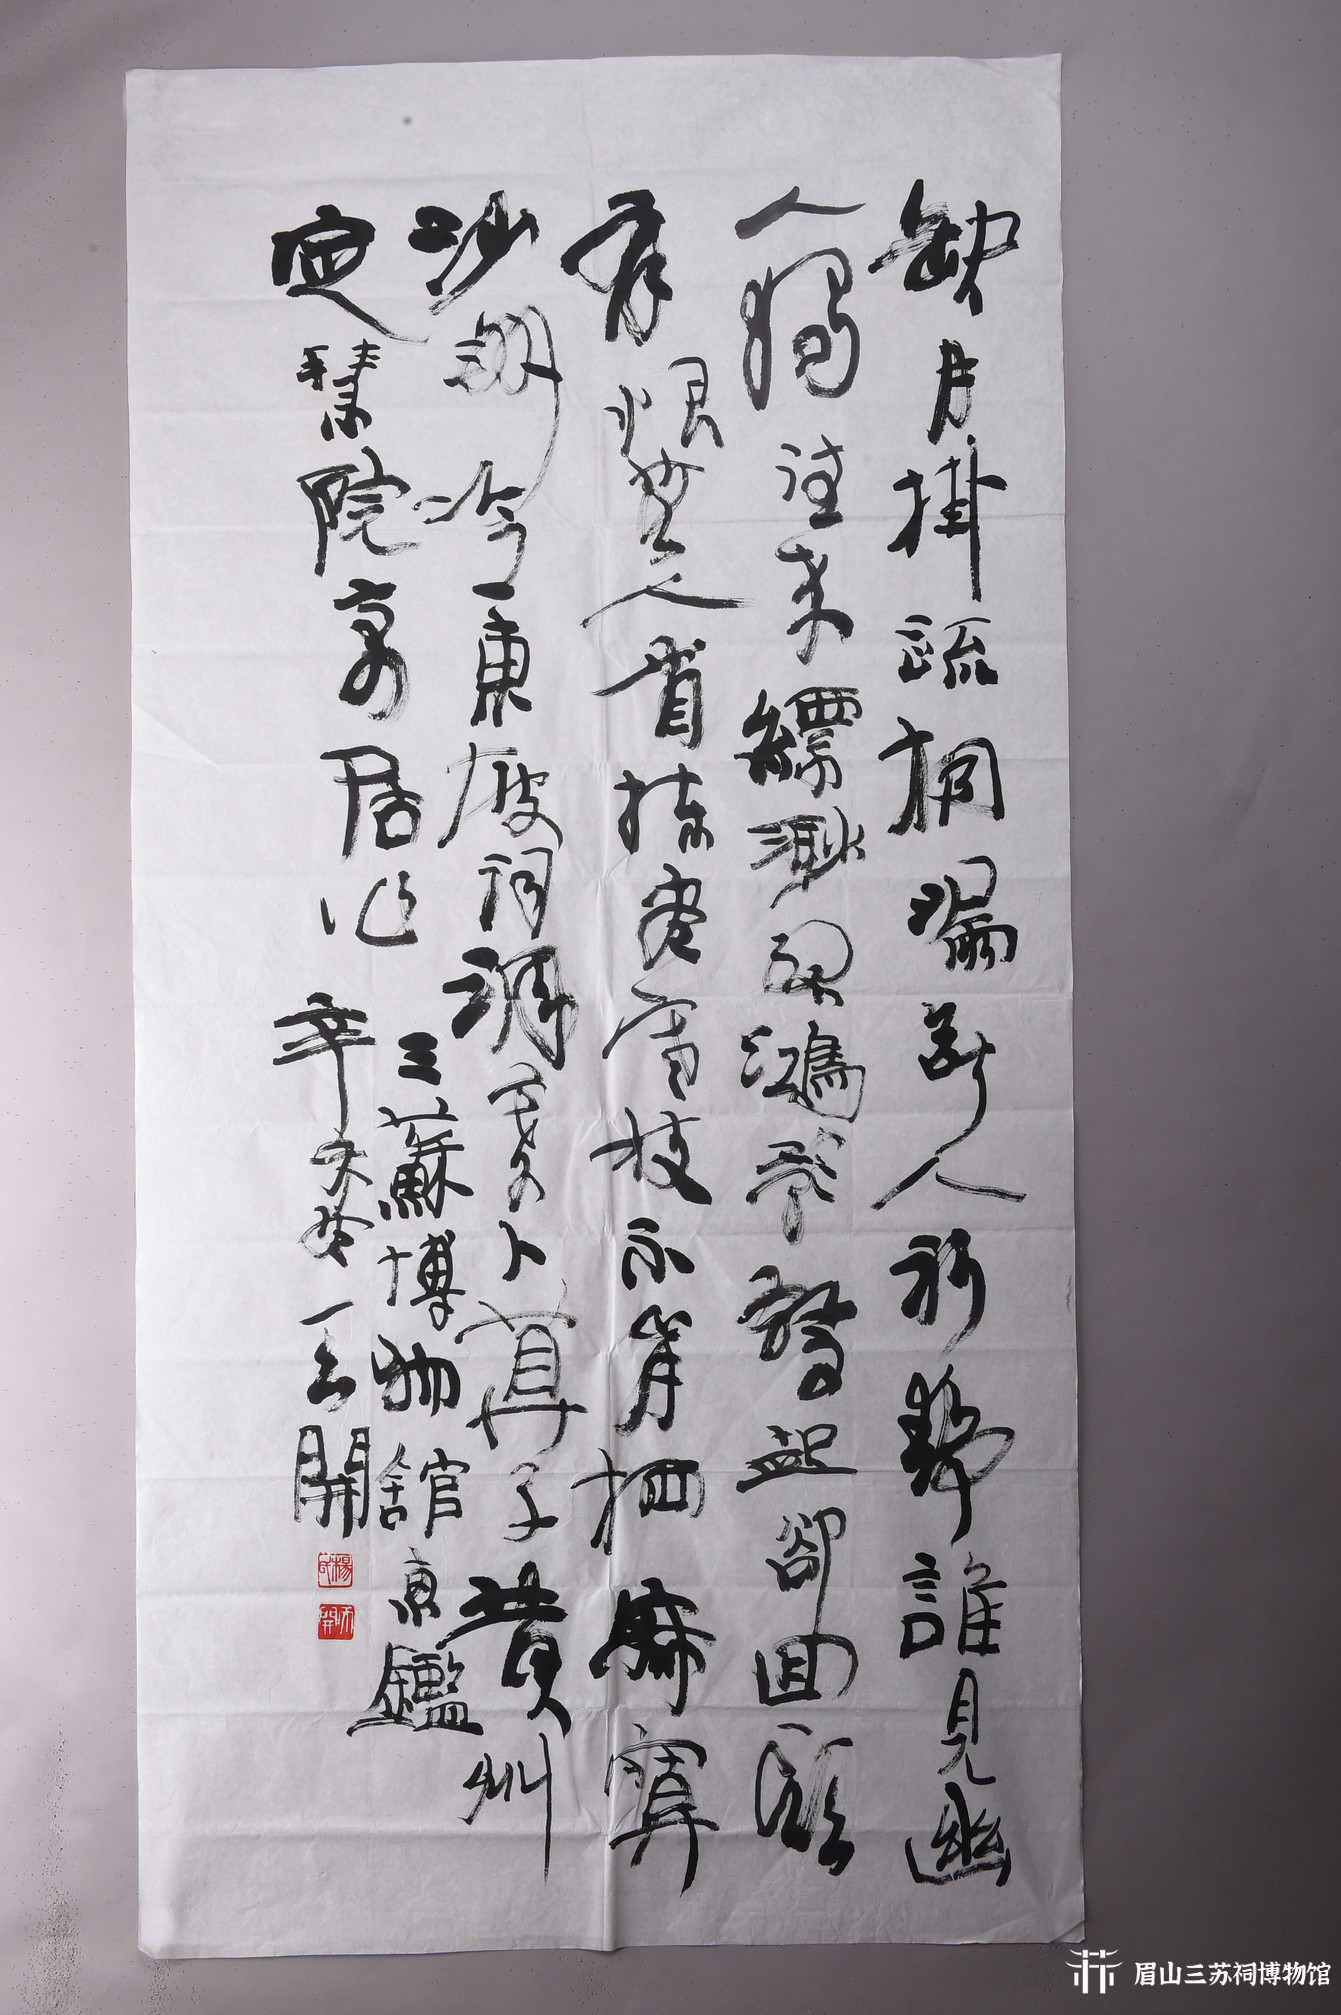 缺月掛疏桐漏斷人初靜誰見幽
人獨往來縹渺孤鴻影驚起卻回頭
有恨無人省揀盡寒枝不肯栖寂寞
沙洲冷東坡詞調寄卜算子黄州
定慧院寓居作
三蘇博物館惠鑑
辛未冬開
眉山三苏祠博物馆